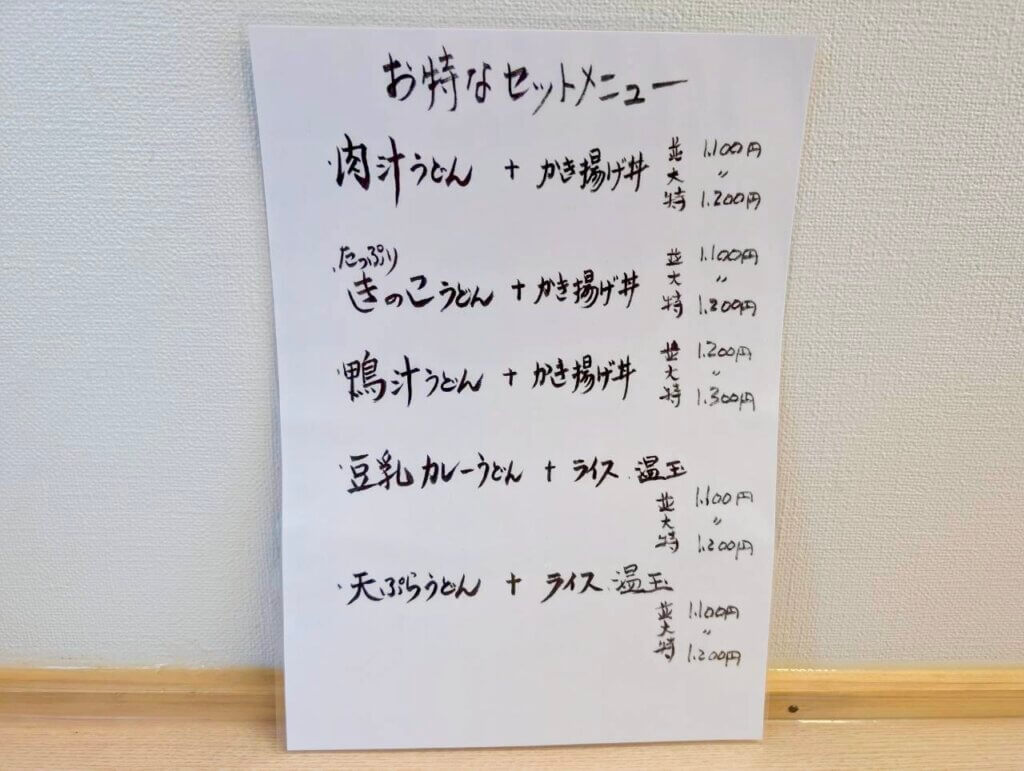 お特なセットメニュー
・肉汁うどん + かき揚げ丼 並 1.100円
大 〃
特 1.200円
・たっぷり
きのこうどん + かき揚げ丼 並 1.100円
大 〃
特 1.200円
・鴨汁うどん + かき揚げ丼 並 1.200円
大 〃
特 1.300円
・豆乳カレーうどん + ライス.温玉
並 1.100円
大 〃
特 1.200円
・天ぷらうどん + ライス.温玉
並 1.100円
大 〃
特 1.200円